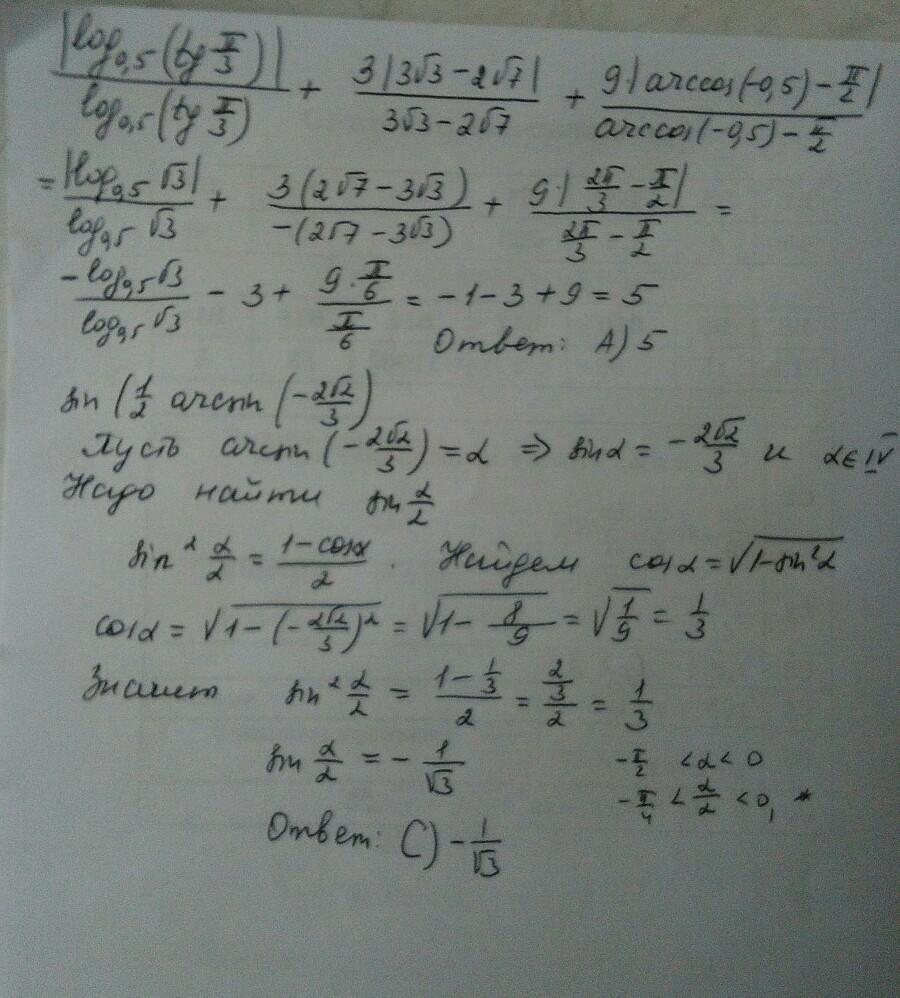 |log₀,₅(tg π/3)| / log₀,₅(tg π/3) + 3|3√3 − 2√7| / 3√3 − 2√7 + 9·|arccos(−0,5) − π/2| / arccos(−0,5) − π/2
= |log₀,₅ √3| / log₀,₅ √3 + 3(2√7 − 3√3) / −(2√7 − 3√3) + 9·|2π/3 − π/2| / 2π/3 − π/2 =
−log₀,₅ √3 / log₀,₅ √3 − 3 + 9·π/6 / π/6 = −1 − 3 + 9 = 5
Ответ: А) 5
sin (1/2 arcsin (−2√2/3)
Пусть arcsin (−2√2/3) = α ⇒ sin α = −2√2/3 и α ∈ IV
Надо найти sin α/2
sin² α/2 = 1−cosα / 2 . Найдем cos α = √1−sin²α
cos α = √1−(−2√2/3)² = √1− 8/9 = √1/9 = 1/3
Значит sin² α/2 = 1−1/3 / 2 = 2/3 / 2 = 1/3
sin α/2 = − 1/√3 −π/2 < α < 0
−π/4 < α/2 < 0, *
Ответ: С) −1/√3